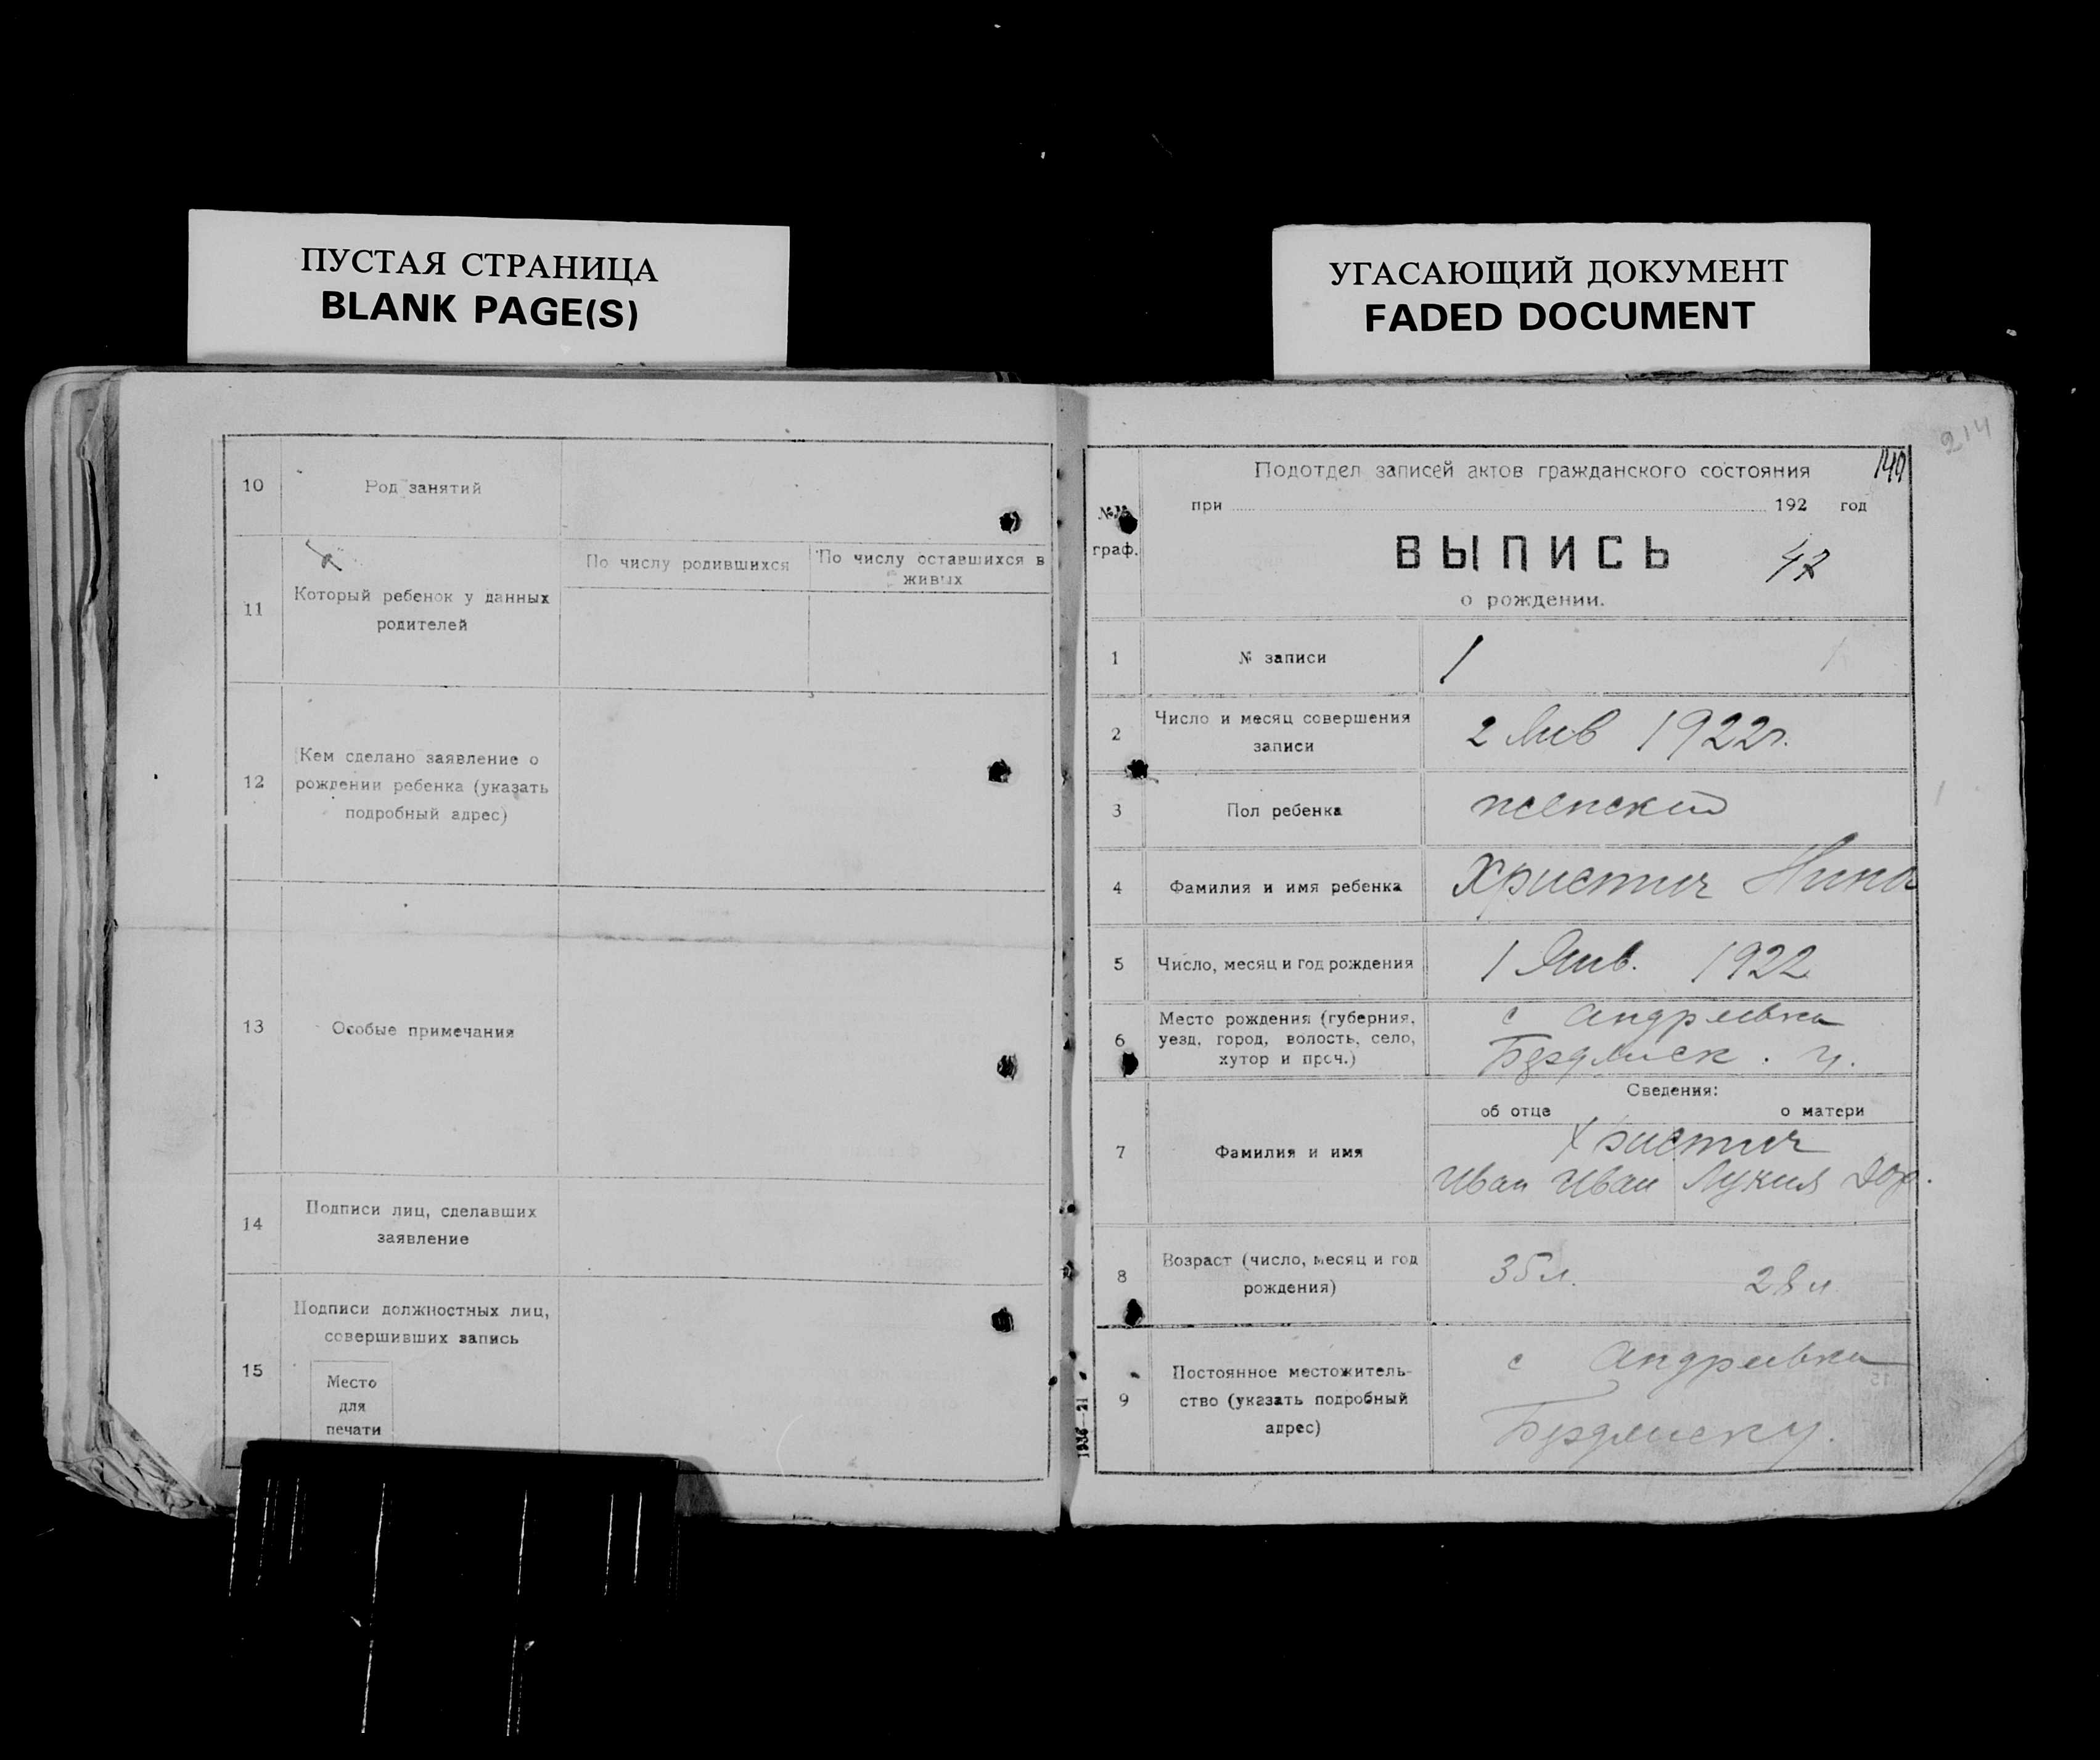 ПУСТАЯ СТРАНИЦА
BLANK PAGE(S)
УГАСАЮЩИЙ ДОКУМЕНТ
FADED DOCUMENT
10
Род занятий
11
Который ребенок у данных
родителей
По числу родившихся
По числу оставшихся в
живых
12
Кем сделано заявление о
рождении ребенка (указать
подробный адрес)
13
Особые примечания
14
Подписи лиц, сделавших
заявление
15
Подписи должностных лиц,
совершивших запись
Место
для
печати
214
Подотдел записей актов гражданского состояния
при 192 год
№№
граф.
ВЫПИСЬ
47
о рождении.
1
№ записи
1
2
Число и месяц совершения
записи
2 Янв 1922г.
3
Пол ребенка
женский
4
Фамилия и имя ребенка
Христич Нина
5
Число, месяц и год рождения
1 Янв. 1922
6
Место рождения (губерния,
уезд, город, волость, село,
хутор и проч.)
с Андреевка
Бердянск. у.
Сведения:
об отце о матери
7
Фамилия и имя
Христич
Иван Иван Лукия
8
Возраст (число, месяц и год
рождения)
35 л. 28 л
9
Постоянное местожитель-
ство (указать подробный
адрес)
с Андреевка
Бердянск у.
1936—21